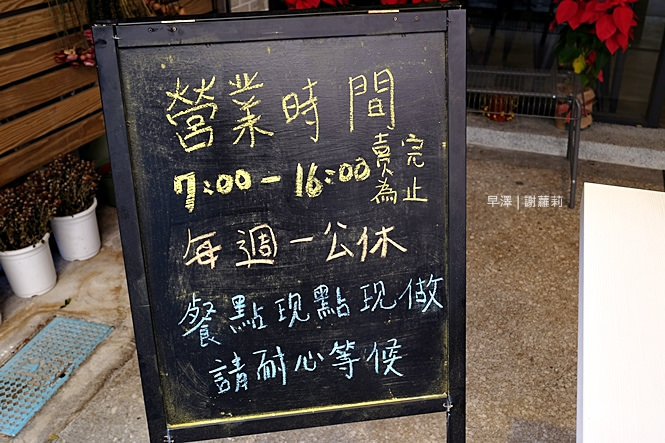 營業時間
7:00-16:00 賣完為止
每週一公休
餐點現點現做
請耐心等候
早澤 | 謝蘿莉